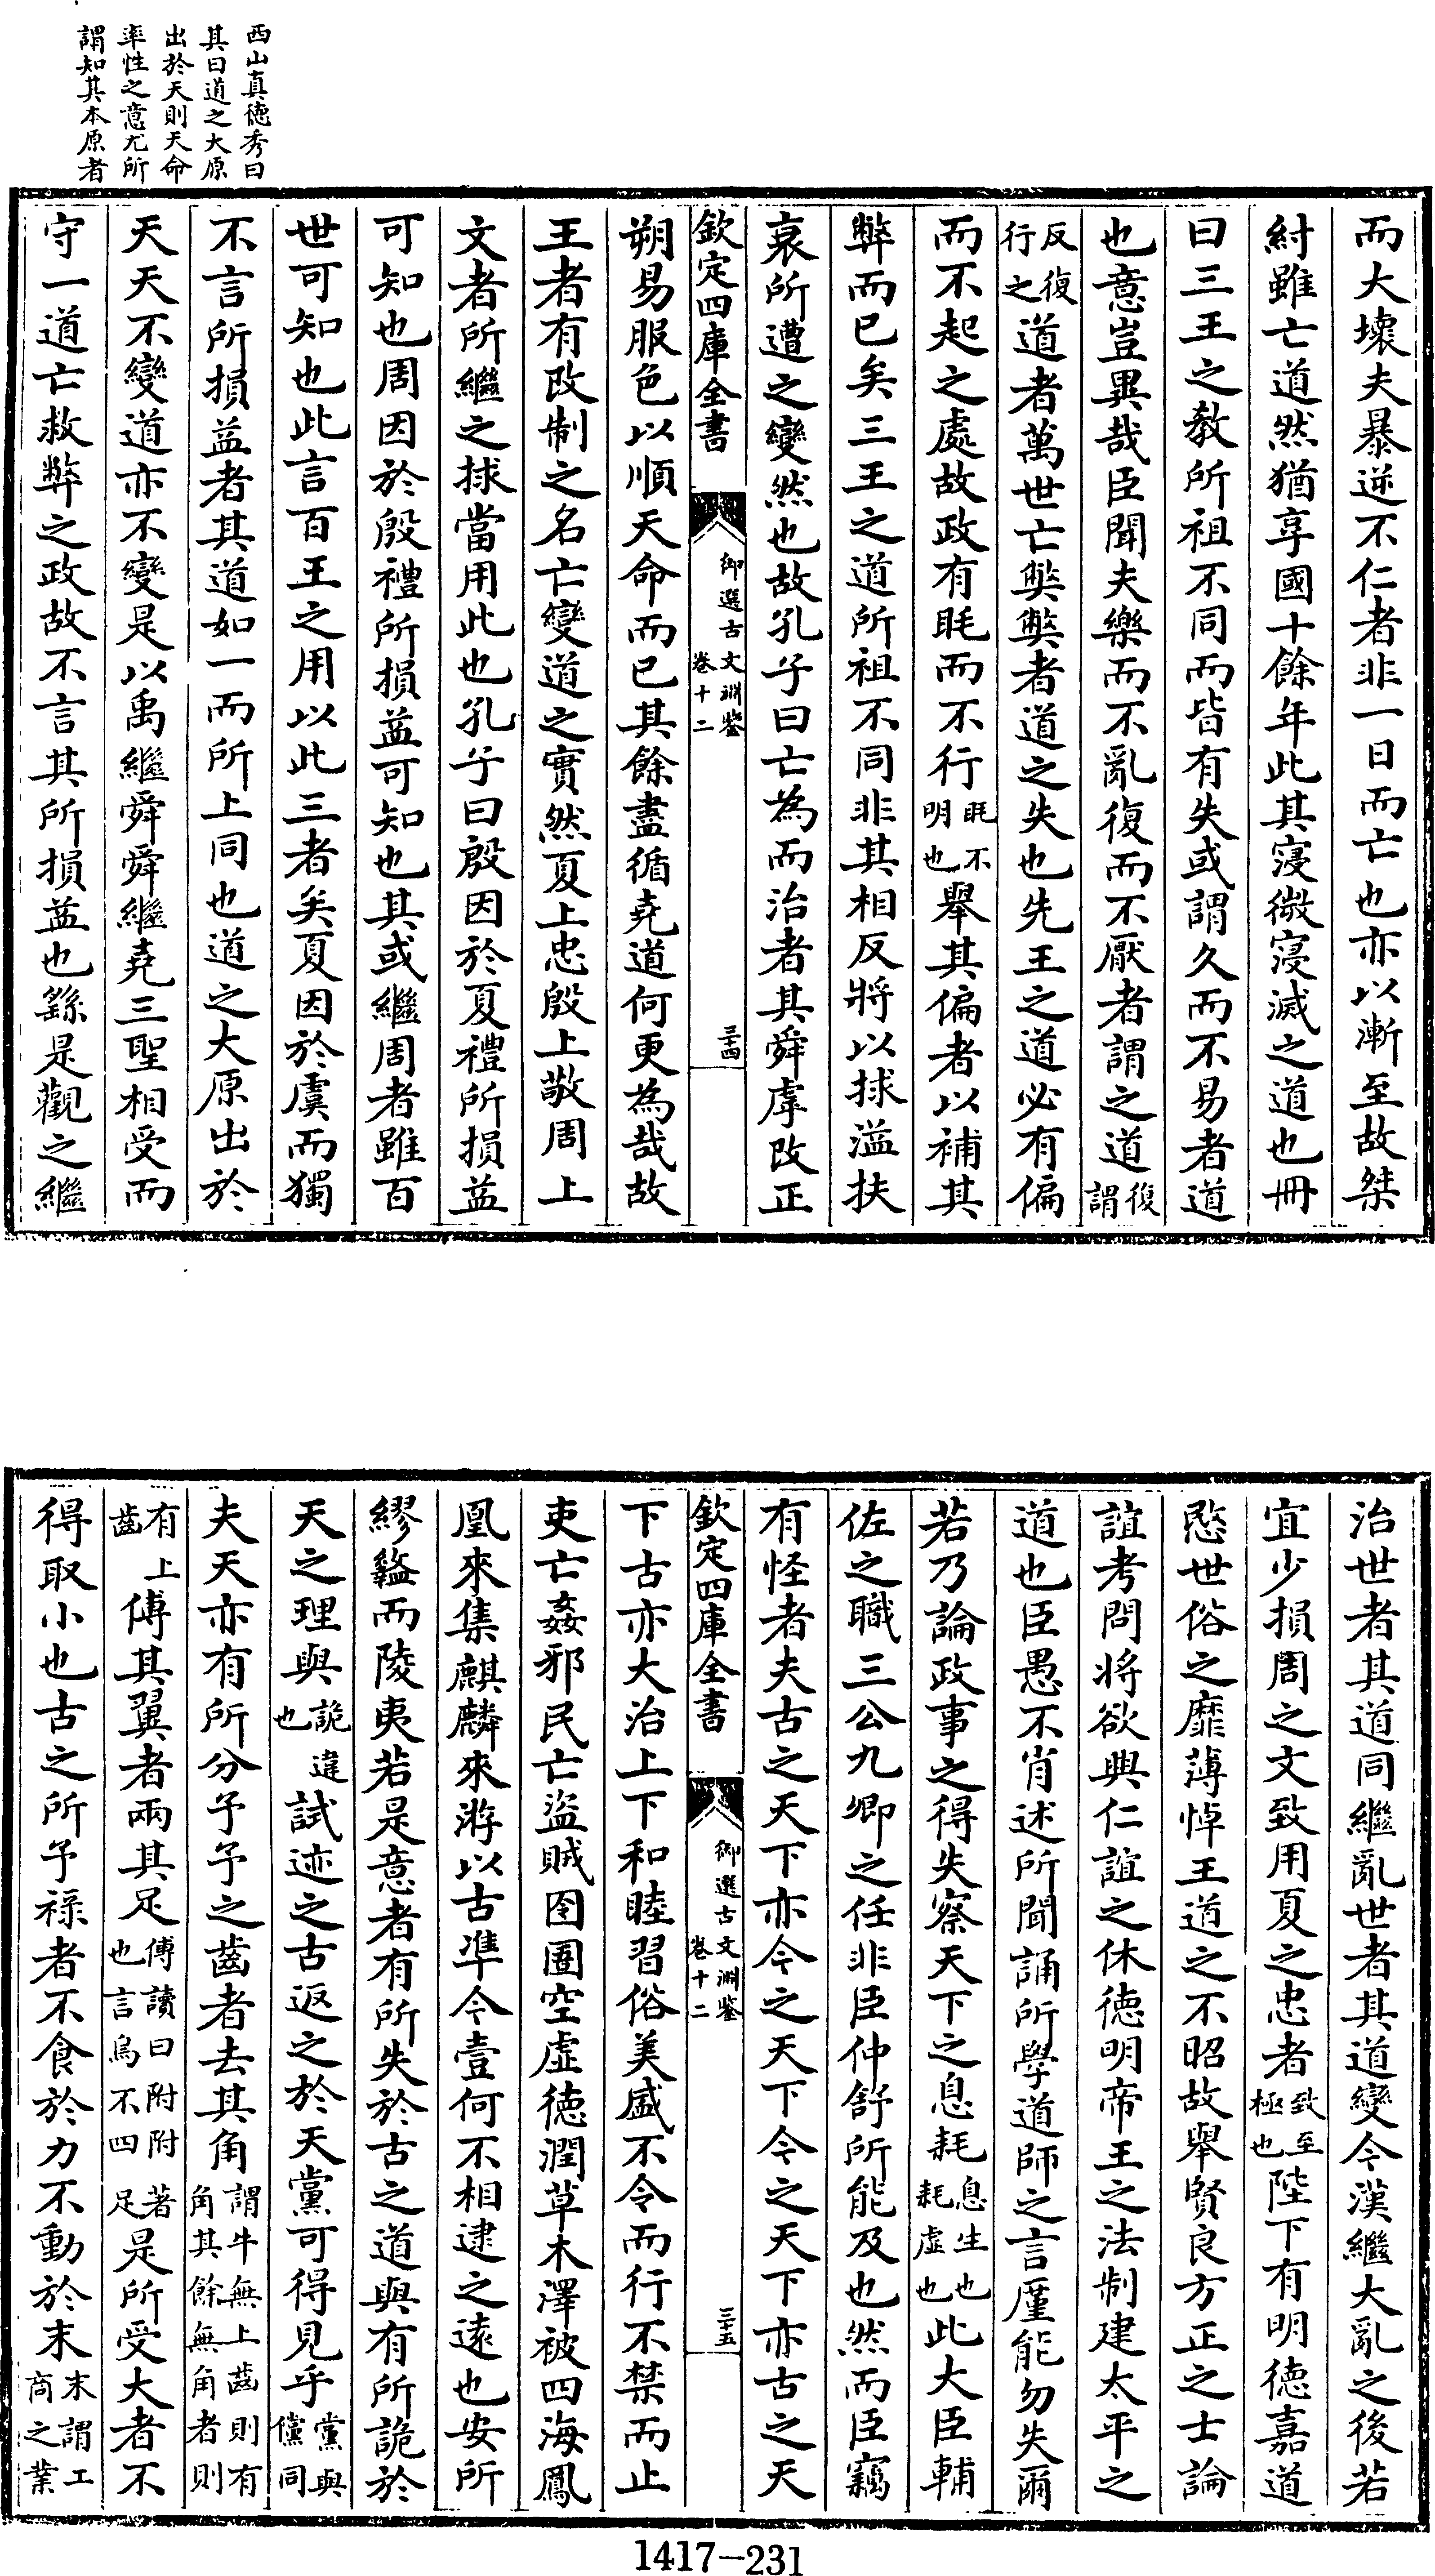 西山真德秀曰
其曰道之大原
出於天則天命
率性之意尤所
謂知其本原者
而大壞夫暴逆不仁者非一日而亡也亦以漸至故桀
紂雖亡道然猶享國十餘年此其寖微寖滅之道也冊
曰三王之教所祖不同而皆有失或謂久而不易者道
也意豈異哉臣聞夫樂而不亂復而不厭者謂之道復謂
反復行之道者萬世亡弊弊者道之失也先王之道必有偏
而不起之處故政有眊而不行眊不明也舉其偏者以補其
弊而已矣三王之道所祖不同非其相反將以捄溢扶
衰所遭之變然也故孔子曰亡為而治者其舜虖改正
欽定四庫全書 御選古文淵鑒 卷十二 三十四
朔易服色以順天命而已其餘盡循堯道何更為哉故
王者有改制之名亡變道之實然夏上忠殷上敬周上
文者所繼之捄當用此也孔子曰殷因於夏禮所損益
可知也周因於殷禮所損益可知也其或繼周者雖百
世可知也此言百王之用以此三者矣夏因於虞而獨
不言所損益者其道如一而所上同也道之大原出於
天天不變道亦不變是以禹繼舜舜繼堯三聖相受而
守一道亡救弊之政故不言其所損益也繇是觀之繼
治世者其道同繼亂世者其道變今漢繼大亂之後若
宜少損周之文致用夏之忠者致至極也陛下有明德嘉道
愍世俗之靡薄悼王道之不昭故舉賢良方正之士論
誼考問將欲興仁誼之休德明帝王之法制建太平之
道也臣愚不肖述所聞誦所學道師之言廑能勿失爾
若乃論政事之得失察天下之息耗息生也耗虛也此大臣輔
佐之職三公九卿之任非臣仲舒所能及也然而臣竊
有怪者夫古之天下亦今之天下今之天下亦古之天
欽定四庫全書 御選古文淵鑒 卷十二 三十五
下古亦大治上下和睦習俗美盛不令而行不禁而止
吏亡姦邪民亡盜賊囹圄空虛德潤草木澤被四海鳳
凰來集麒麟來游以古準今壹何不相逮之遠也安所
繆盭而陵夷若是意者有所失於古之道與有所詭於
天之理與詭違也試迹之古返之於天黨可得見乎黨與儻同
夫天亦有所分予予之齒者去其角謂牛無上齒則有角其餘無角者則
有上齒傅其翼者兩其足傅讀曰附附著也言鳥不四足是所受大者不
得取小也古之所予祿者不食於力不動於末末謂工商之業
1417-231